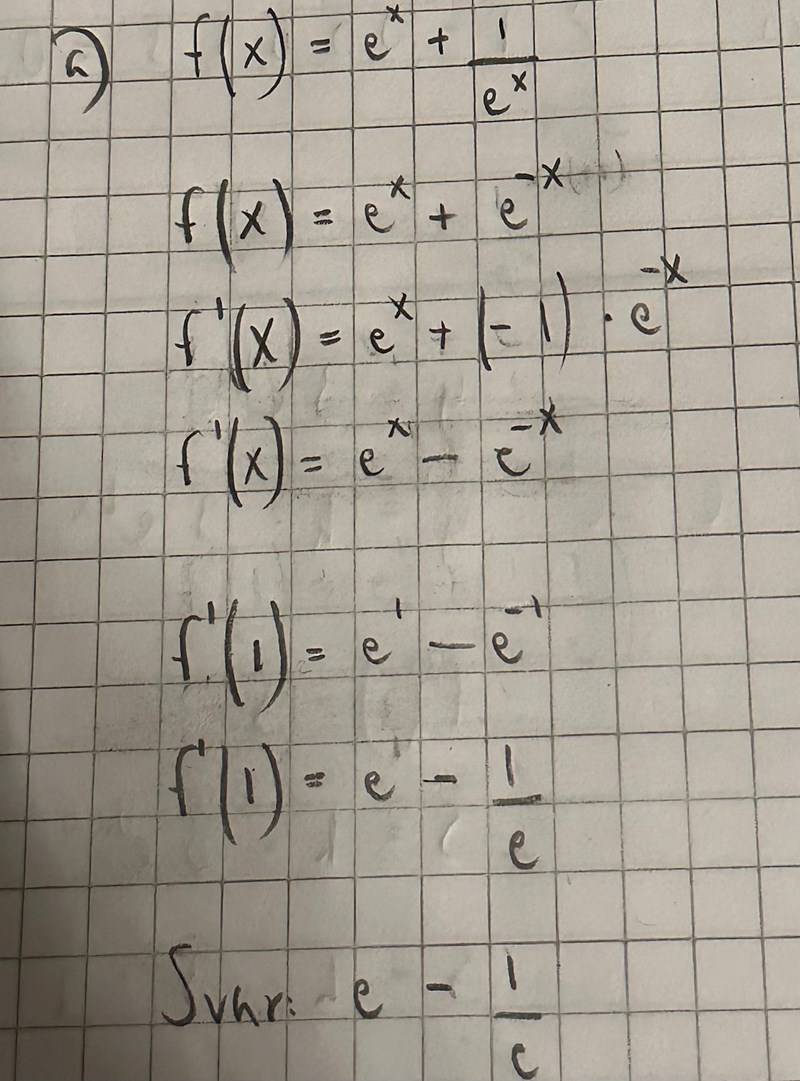 a) f(x) = e^x + 1/e^x
f(x) = e^x + e^-x
f'(x) = e^x + (-1) · e^-x
f'(x) = e^x - e^-x
f'(1) = e^1 - e^-1
f'(1) = e^1 - 1/e
Svar: e - 1/e